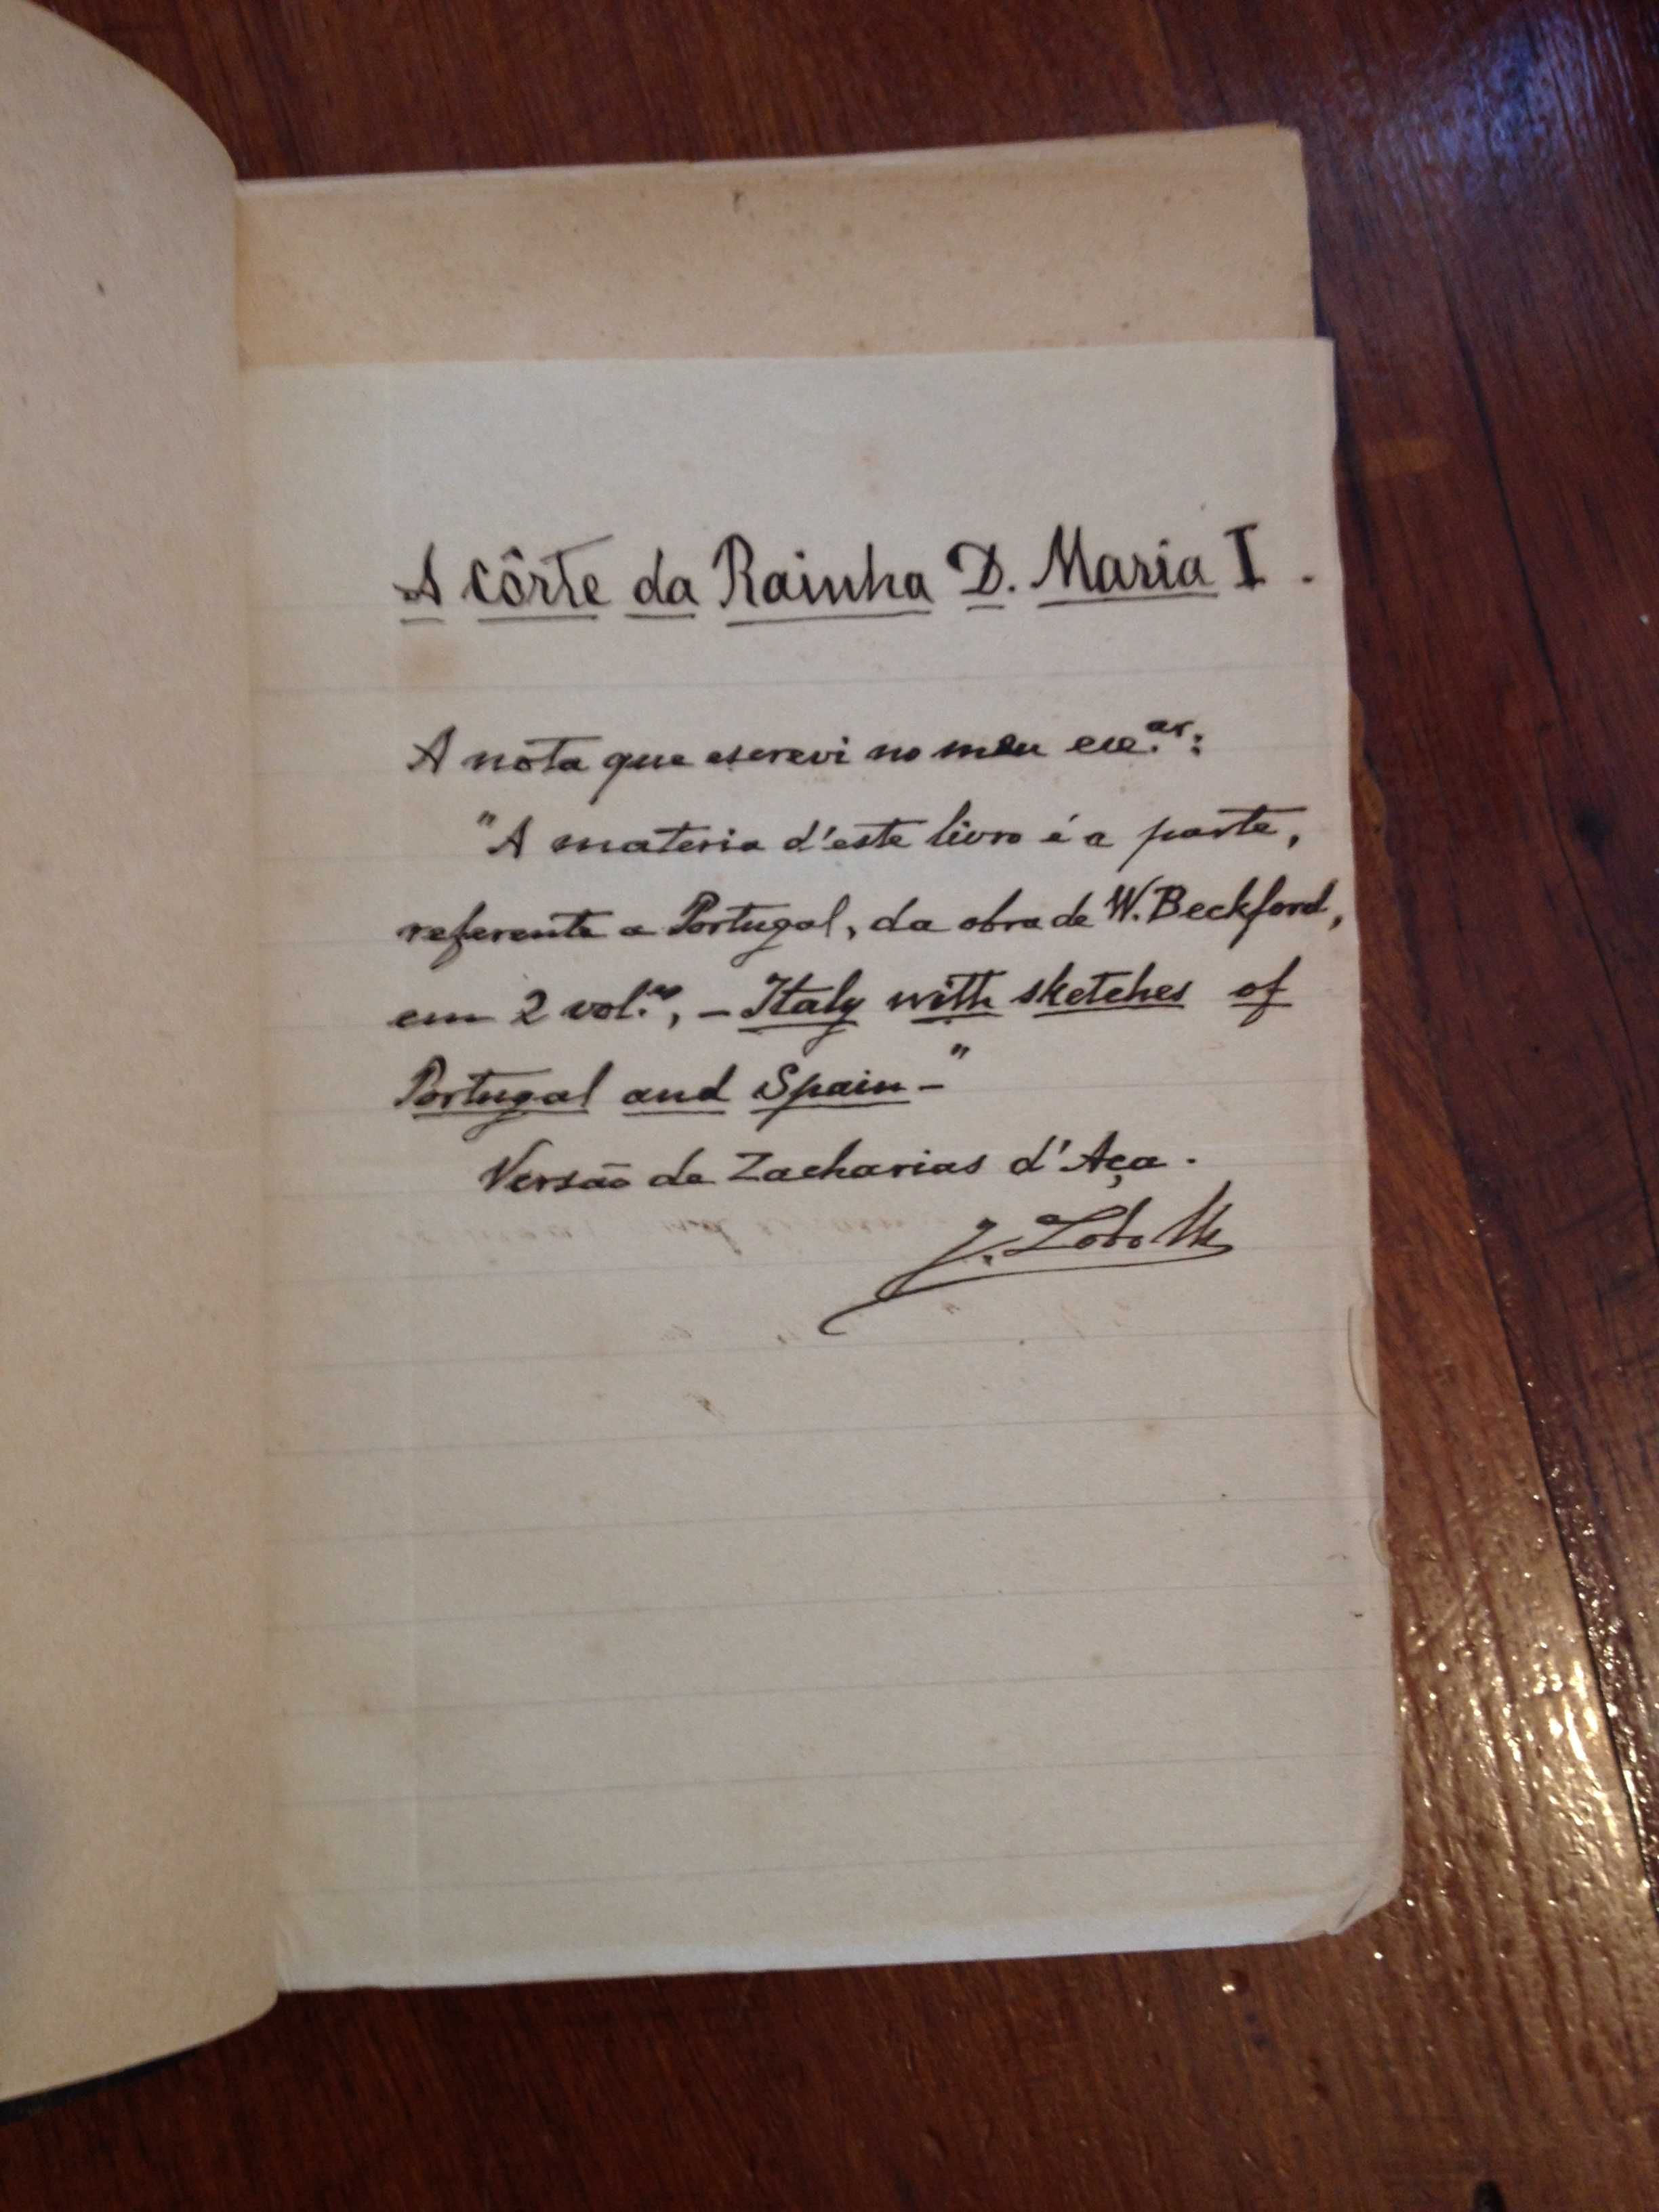 A côrte da Rainha D. Maria I.
A nota que escrevi no meu exe.ar:
"A materia d'este livro é a parte,
referente a Portugal, da obra de W. Beckford,
em 2 vol.es, – Italy with sketches of
Portugal and Spain –"
Versão de Zacharias d'Aça.
J. Lobo